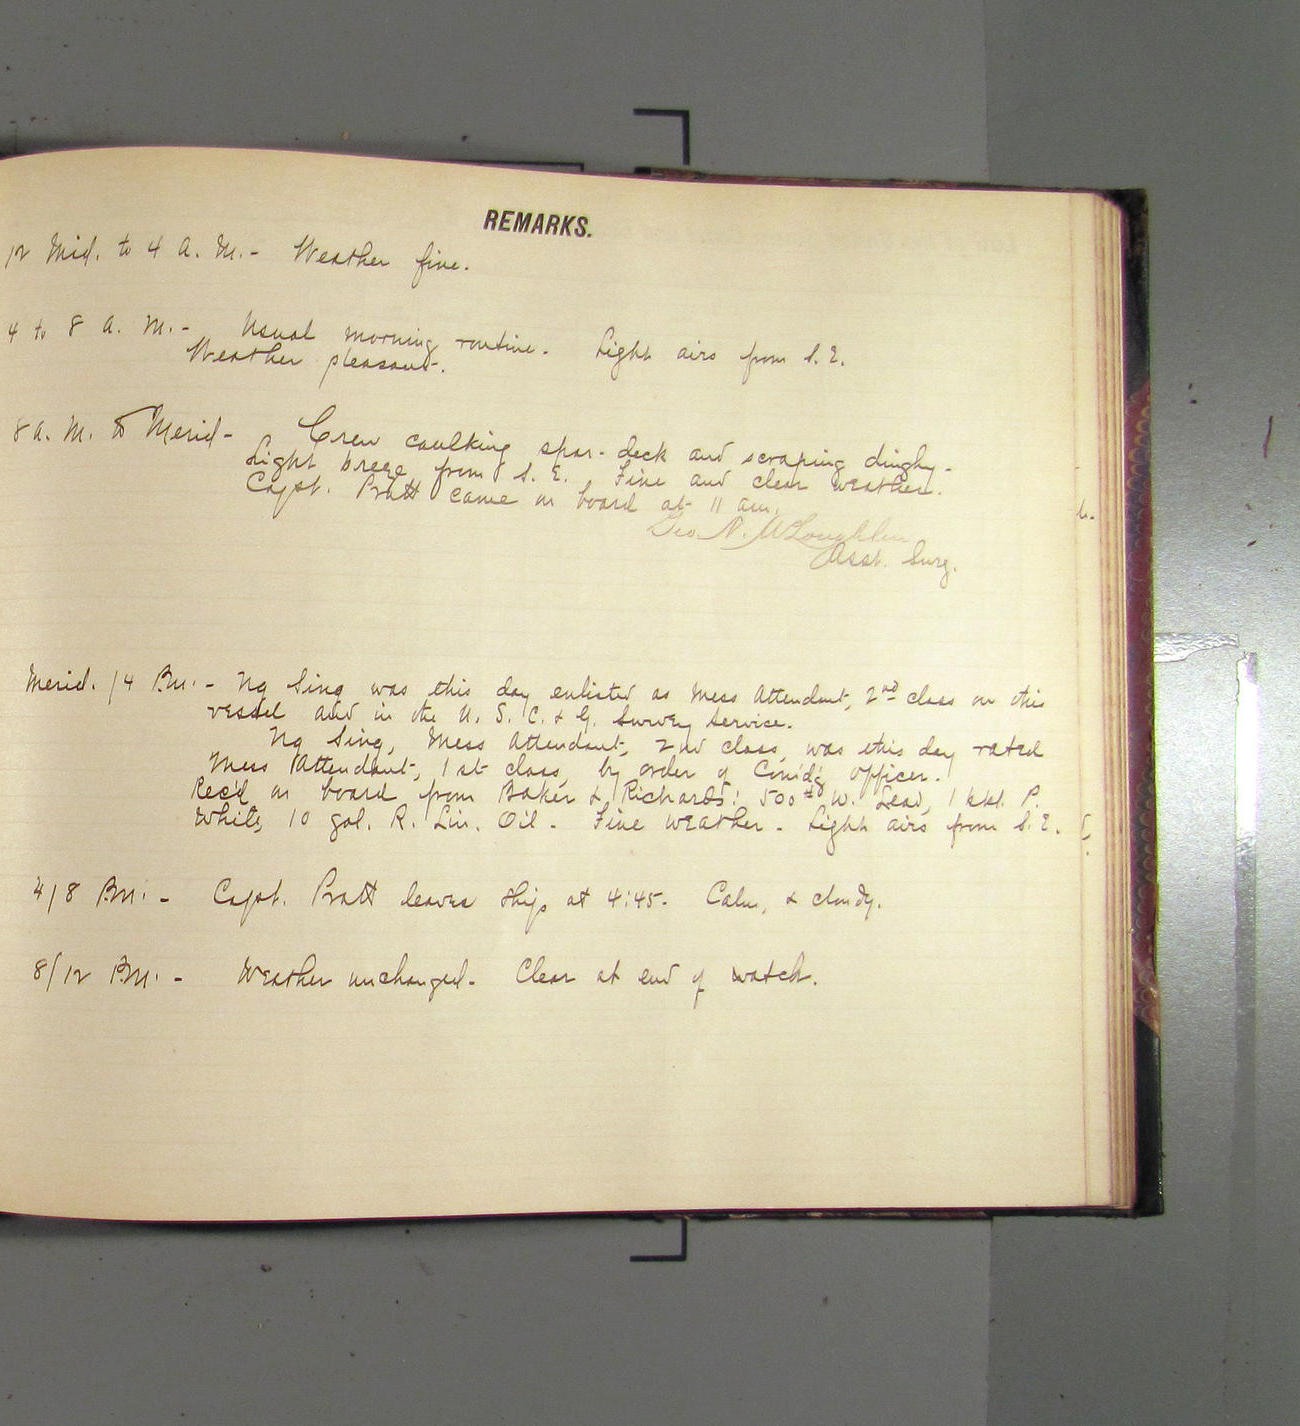 REMARKS.
12 Mid. to 4 A. M. - Weather fine.
4 to 8 A. M. - Usual morning routine. Light airs from S. E.
Weather pleasant.
8 A. M. to Merid - Crew caulking spar-deck and scraping dinghy.
Light breeze from S. E. Fine and clear weather.
Capt. Pratt came on board at 11 am.
Geo. N. McLoughlin
Asst. Surg.
Merid. /4 P.M. - Ng Sing was this day enlisted as Mess Attendant, 2nd class on this
vessel and in the U. S. C. & G. Survey Service.
Ng Sing, Mess Attendant, 2nd class, was this day rated
Mess Attendant, 1st class, by order of Com'd'g officer.
Rec'd on board from Baker & Richards: 500 # W. Lead, 1 P.
White, 10 gal. R. Lin. Oil. Fine weather. Light airs from S. E.
4/8 P.M. - Capt. Pratt leaves ship at 4:45. Calm, & cloudy.
8/12 P.M. - Weather unchanged. Clear at end of watch.